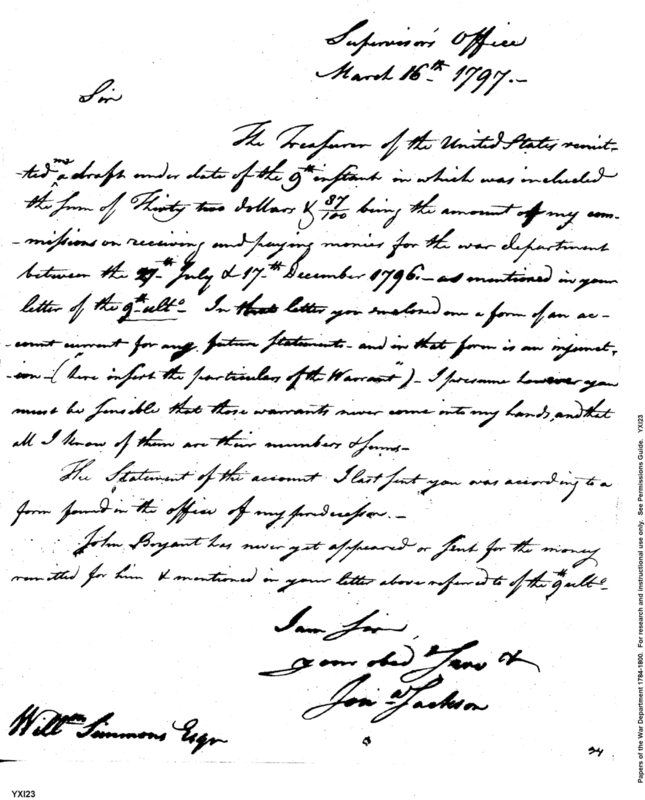 Supervisor's Office
March 16th 1797.-
Sir
The Treasurer of the United States remit-
-ted me a draft under date of the 9th instant in which was included
the sum of Thirty two dollars & 87/100 being the amount of my com-
-missions on receiving and paying monies for the war department
between the 27th July & 17th December 1796.- as mentioned in your
letter of the 9th ulto- In that letter you enclosed me a form of an ac-
-count current for any future statements- and in that form is an injunct-
-ion- ("here insert the particulars of the Warrant")- I presume however you
must be sensible that those warrants never come into my hands, and that
all I know of them are their numbers & sums-
The Statement of the account I last sent you was according to a
form found in the office of my predecessor.-
John Bryant has never yet appeared or sent for the money
remitted for him & mentioned in your letter above referred to of the 9th ulto-
I am Sir,
your obed Serv &
Jona Jackson
Willm Simmons Esqr
24
YXI23
Papers of the War Department 1784-1800. For research and instructional use only. See Permissions Guide. YXI23